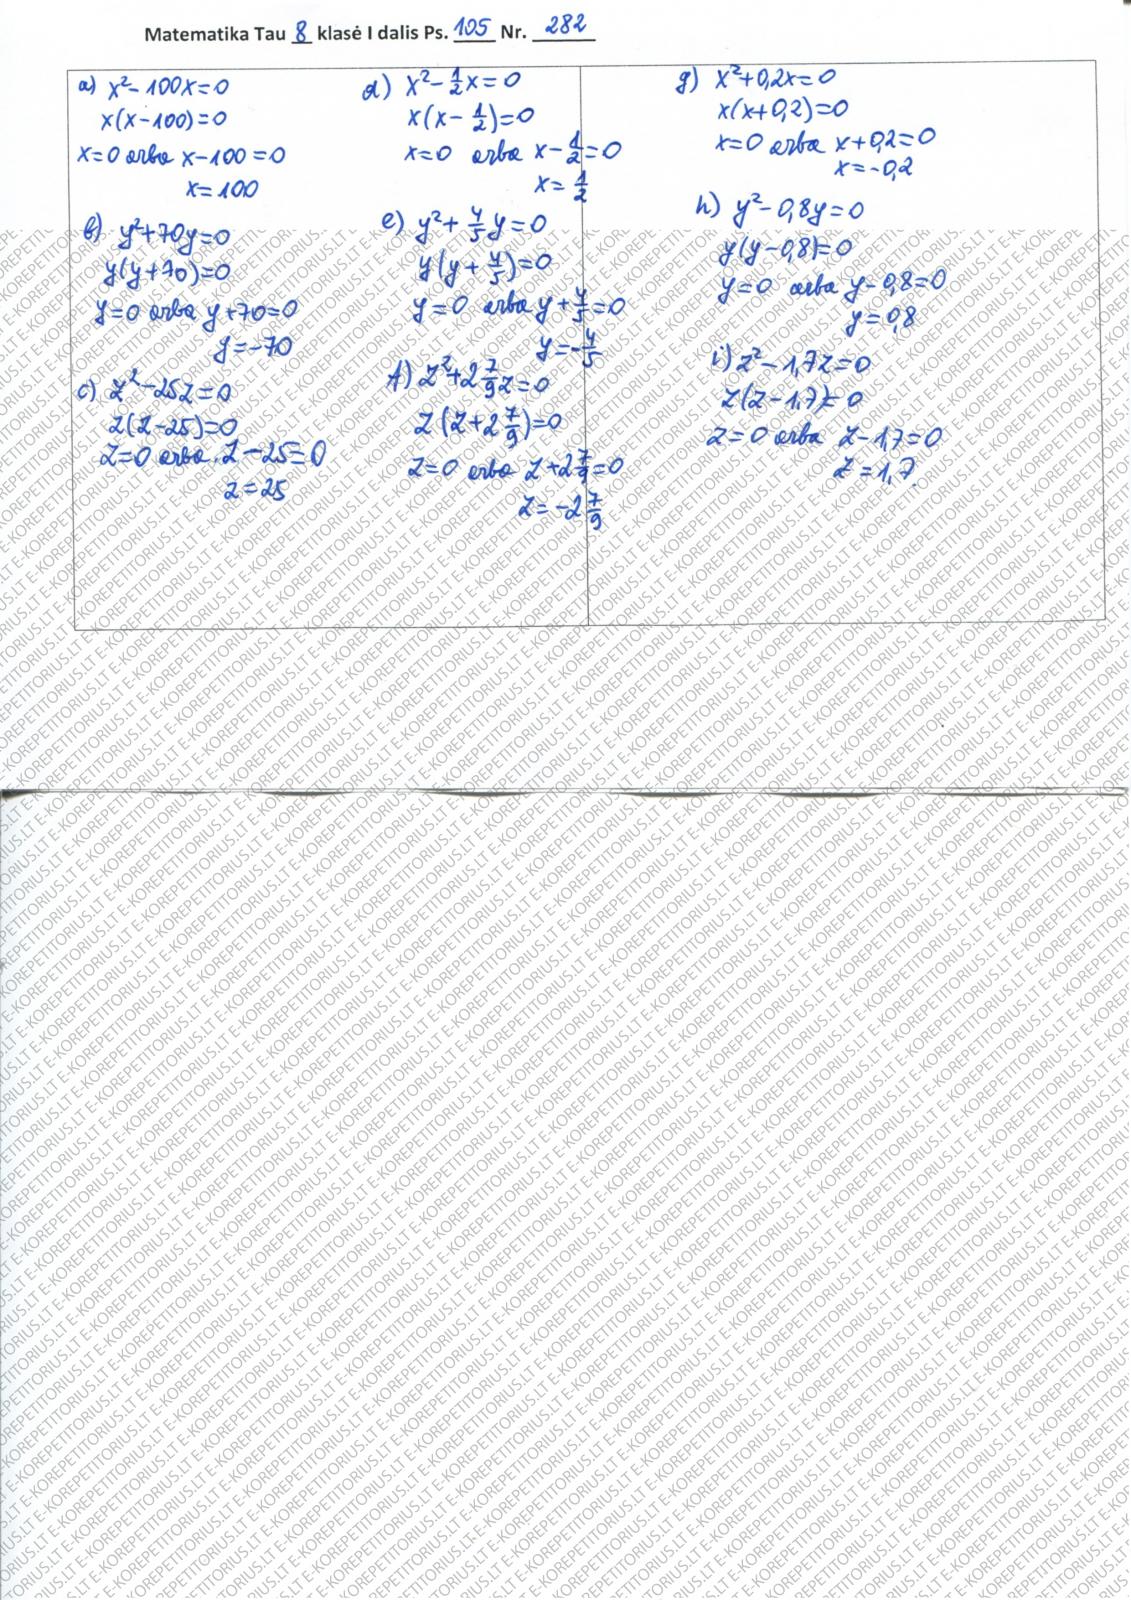 Matematika Tau 8 klasė I dalis Ps. 105 Nr. 282
a) x²-100x=0
x(x-100)=0
x=0 arba x-100=0
x=100
b) y²+70y=0
y(y+70)=0
y=0 arba y+70=0
y=-70
c) z²-25z=0
z(z-25)=0
z=0 arba z-25=0
z=25
d) x²-1/2x=0
x(x-1/2)=0
x=0 arba x-1/2=0
x=1/2
e) y²+4/5y=0
y(y+4/5)=0
y=0 arba y+4/5=0
y=-4/5
f) z²+2 7/9z=0
z(z+2 7/9)=0
z=0 arba z+2 7/9=0
z=-2 7/9
g) x²+0,2x=0
x(x+0,2)=0
x=0 arba x+0,2=0
x=-0,2
h) y²-0,8y=0
y(y-0,8)=0
y=0 arba y-0,8=0
y=0,8
i) z²-1,7z=0
z(z-1,7)=0
z=0 arba z-1,7=0
z=1,7
E-KOREPETITORIUS.LT